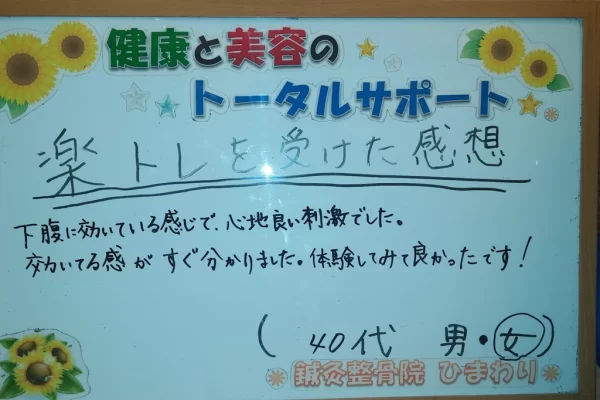 健康と美容の
トータルサポート
楽トレを受けた感想
下腹に効いている感じで、心地良い刺激でした。
効いてる感がすぐ分かりました。体験してみて良かったです!
(40代 男・女)
鍼灸整骨院 ひまわり